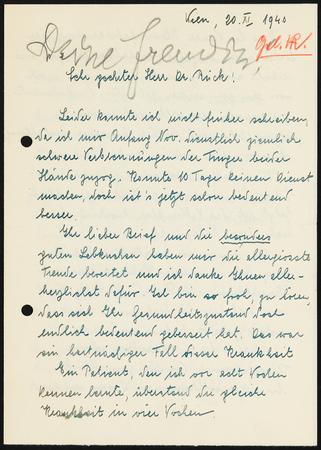 Wien, 20. XI 1940
Sehr geehrter Herr Dr. Rück!
Leider konnte ich nicht früher schreiben,
da ich mir Anfang Nov. dienstlich ziemlich
schwere Verbrennungen der Finger beider
Hände zuzog. Konnte 10 Tage keinen Dienst
machen, doch ist's jetzt schon bedeutend
besser.
Ihr lieber Brief und die besonders
guten Lebkuchen haben mir die allergrösste
Freude bereitet und ich danke Ihnen aller-
herzlichst dafür. Ich bin so froh, zu hören,
dass sich Ihr Gesundheitszustand doch
endlich bedeutend gebessert hat. Das war
ein hartnäckiger Fall dieser Krankheit
Ein Patient, den ich vor acht Wochen
kennen lernte, überstand die gleiche
Krankheit in vier Wochen.